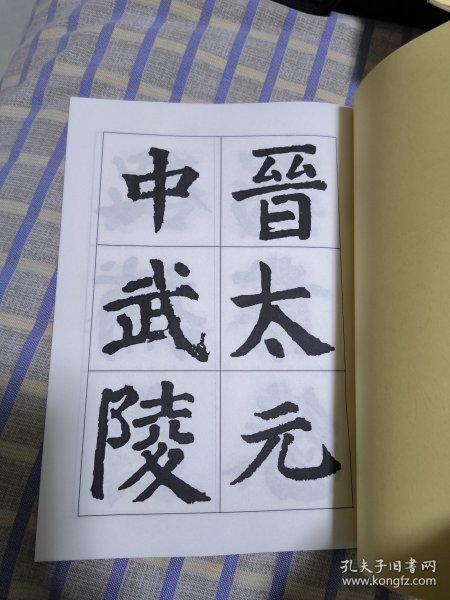 晉太元
中武陵
孔夫子旧书网
www.kongfz.com